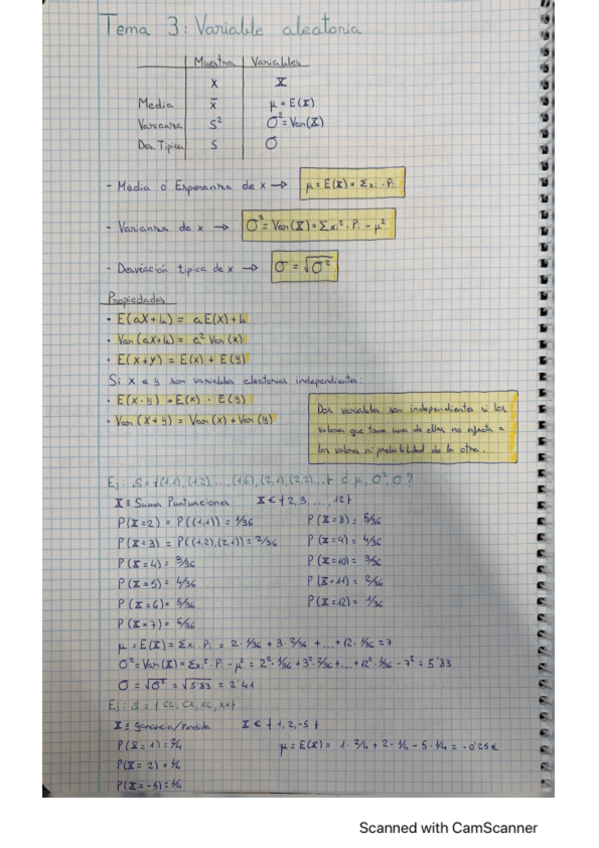 Tema 3: Variable aleatoria
Muestra Variables
x X
Media x̄ μ = E(X)
Varianza S² σ² = Var(X)
Des. Típica S σ
- Media ó Esperanza de x → μ = E(X) = Σxi · Pi
- Varianza de x → σ² = Var(X) = Σxi² · Pi - μ²
- Desviación típica de x → σ = √σ²
Propiedades
· E(aX+b) = aE(X)+b
· Var(aX+b) = a² Var(x)
· E(x+y) = E(x) + E(y)
Si x e y son variables aleatorias independientes:
· E(x·y) = E(x) · E(y)
· Var(x+y) = Var(x) + Var(y)
Dos variables son independientes si los
valores que toma una de ellas no afecta a
los valores ni probabilidad de la otra.
Ej: S = {(1,1), (1,2)..., (1,6), (2,1), (2,2)...} ¿ μ, σ², σ ?
X ≡ Suma Puntuaciones X ∈ {2, 3, ..., 12}
P(X=2) = P((1,1)) = 1/36 P(X=8) = 5/36
P(X=3) = P((1,2),(2,1)) = 2/36 P(X=9) = 4/36
P(X=4) = 3/36 P(X=10) = 3/36
P(X=5) = 4/36 P(X=11) = 2/36
P(X=6) = 5/36 P(X=12) = 1/36
P(X=7) = 6/36
μ = E(X) = Σxi · Pi = 2 · 1/36 + 3 · 2/36 + ... + 12 · 1/36 = 7
σ² = Var(X) = Σxi² · Pi - μ² = 2² · 1/36 + 3² · 2/36 + ... + 12² · 1/36 - 7² = 5'83
σ = √σ² = √5'83 = 2'41
Ej: S = {CC, CX, XC, XX}
X ≡ Ganancia/Perdida X ∈ {1, 2, -5}
P(X=1) = 2/4 μ = E(X) = 1 · 2/4 + 2 · 1/4 - 5 · 1/4 = -0'25€
P(X=2) = 1/4
P(X=-5) = 1/4
Scanned with CamScanner